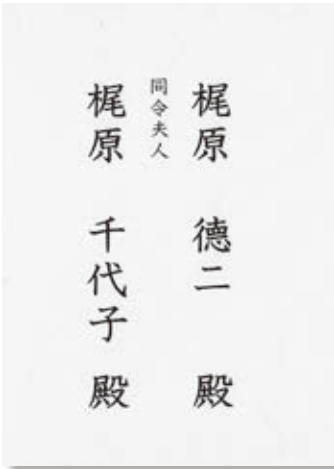 梶原 徳二 殿
同令夫人
梶原 千代子 殿